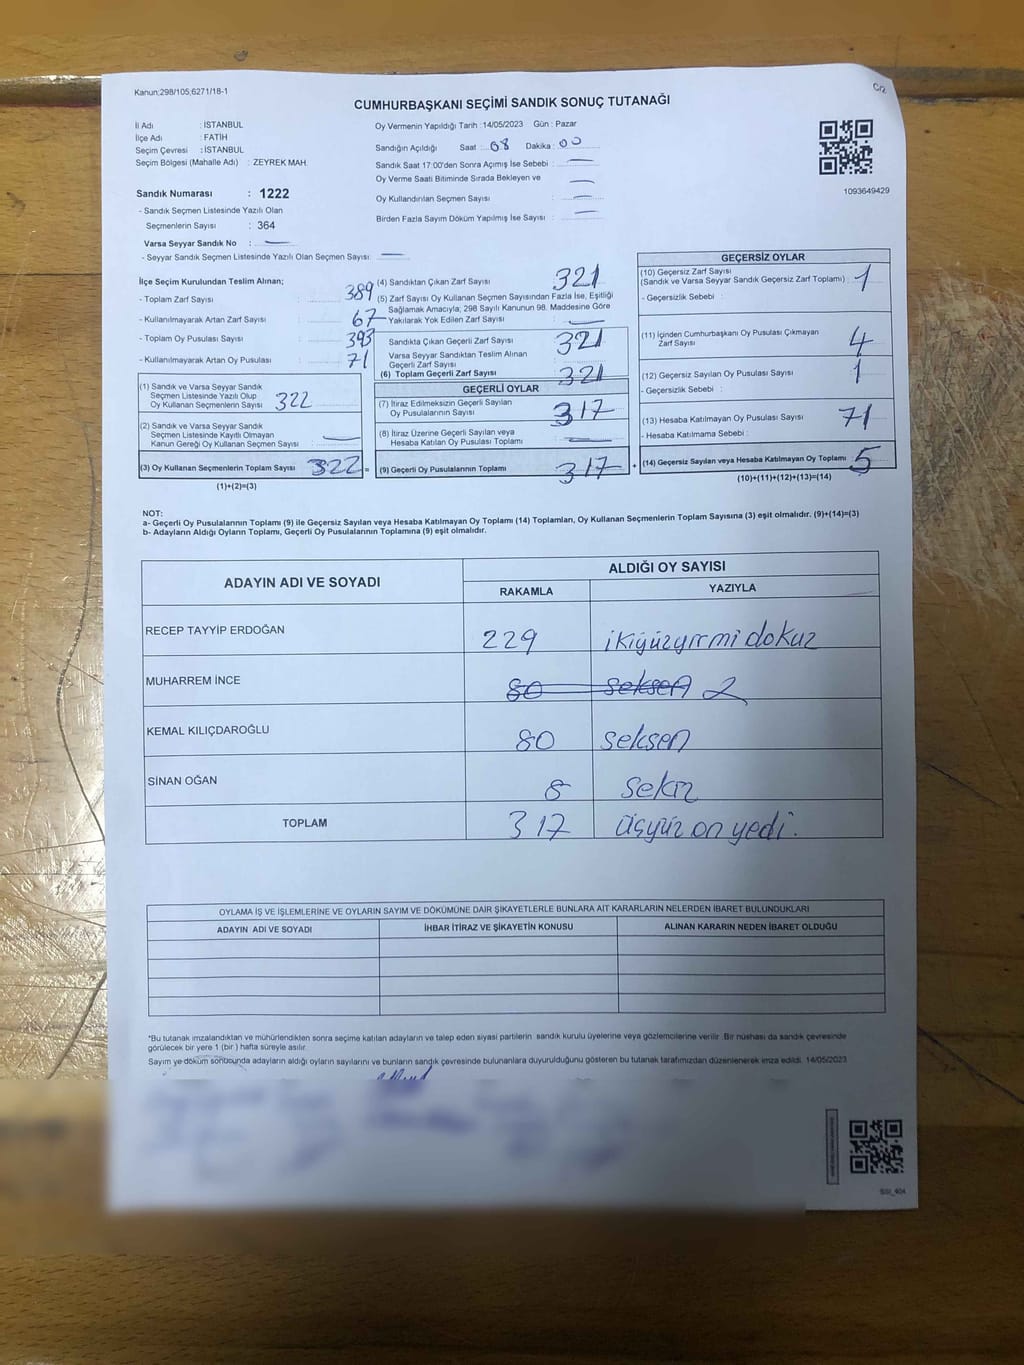 Kanun:298/105,6271/18-1
C/2
CUMHURBAŞKANI SEÇİMİ SANDIK SONUÇ TUTANAĞI
İl Adı : İSTANBUL
İlçe Adı : FATİH
Seçim Çevresi : İSTANBUL
Seçim Bölgesi (Mahalle Adı) : ZEYREK MAH
Sandık Numarası : 1222
- Sandık Seçmen Listesinde Yazılı Olan
Seçmenlerin Sayısı : 364
Varsa Seyyar Sandık No : —
- Seyyar Sandık Seçmen Listesinde Yazılı Olan Seçmen Sayısı: —
Oy Vermenin Yapıldığı Tarih :14/05/2023 Gün : Pazar
Sandığın Açıldığı Saat : 08 Dakika : 00
Sandık Saat 17:00'den Sonra Açımış İse Sebebi : —
Oy Verme Saati Bitiminde Sırada Bekleyen ve —
Oy Kullandırılan Seçmen Sayısı : —
Birden Fazla Sayım Döküm Yapılmış İse Sayısı : —
1093649429
İlçe Seçim Kurulundan Teslim Alınan;
- Toplam Zarf Sayısı : 389
- Kullanılmayarak Artan Zarf Sayısı : 67
- Toplam Oy Pusulası Sayısı : 393
- Kullanılmayarak Artan Oy Pusulası : 71
(1) Sandık ve Varsa Seyyar Sandık
Seçmen Listesinde Yazılı Olup
Oy Kullanan Seçmenlerin Sayısı : 322
(2) Sandık ve Varsa Seyyar Sandık
Seçmen Listesinde Kayıtlı Olmayan
Kanun Gereği Oy Kullanan Seçmen Sayısı : —
(3) Oy Kullanan Seçmenlerin Toplam Sayısı : 322 =
(1)+(2)=(3)
(4) Sandıktan Çıkan Zarf Sayısı : 321
(5) Zarf Sayısı Oy Kullanan Seçmen Sayısından Fazla İse, Eşitliği
Sağlamak Amacıyla; 298 Sayılı Kanunun 98. Maddesine Göre
Yakılarak Yok Edilen Zarf Sayısı : —
Sandıkta Çıkan Geçerli Zarf Sayısı : 321
Varsa Seyyar Sandıktan Teslim Alınan
Geçerli Zarf Sayısı :
(6) Toplam Geçerli Zarf Sayısı : 321
GEÇERLİ OYLAR
(7) İtiraz Edilmeksizin Geçerli Sayılan
Oy Pusulalarının Sayısı : 317
(8) İtiraz Üzerine Geçerli Sayılan veya
Hesaba Katılan Oy Pusulası Toplamı : —
(9) Geçerli Oy Pusulalarının Toplamı : 317 +
GEÇERSİZ OYLAR
(10) Geçersiz Zarf Sayısı
(Sandık ve Varsa Seyyar Sandık Geçersiz Zarf Toplamı) : 1
- Geçersizlik Sebebi :
(11) İçinden Cumhurbaşkanı Oy Pusulası Çıkmayan
Zarf Sayısı : 4
(12) Geçersiz Sayılan Oy Pusulası Sayısı : 1
- Geçersizlik Sebebi :
(13) Hesaba Katılmayan Oy Pusulası Sayısı : 71
- Hesaba Katılmama Sebebi :
(14) Geçersiz Sayılan veya Hesaba Katılmayan Oy Toplamı : 5
(10)+(11)+(12)+(13)=(14)
NOT:
a- Geçerli Oy Pusulalarının Toplamı (9) ile Geçersiz Sayılan veya Hesaba Katılmayan Oy Toplamı (14) Toplamları, Oy Kullanan Seçmenlerin Toplam Sayısına (3) eşit olmalıdır. (9)+(14)=(3)
b- Adayların Aldığı Oyların Toplamı, Geçerli Oy Pusulalarının Toplamına (9) eşit olmalıdır.
ADAYIN ADI VE SOYADI
ALDIĞI OY SAYISI
RAKAMLA YAZIYLA
RECEP TAYYİP ERDOĞAN 229 ikiyüzyirmi dokuz
MUHARREM İNCE 80 seksen
KEMAL KILIÇDAROĞLU 80 seksen
SİNAN OĞAN 8 sekiz
TOPLAM 317 üçyüz on yedi.
OYLAMA İŞ VE İŞLEMLERİNE VE OYLARIN SAYIM VE DÖKÜMÜNE DAİR ŞİKAYETLERLE BUNLARA AİT KARARLARIN NELERDEN İBARET BULUNDUKLARI
ADAYIN ADI VE SOYADI İHBAR İTİRAZ VE ŞİKAYETİN KONUSU ALINAN KARARIN NEDEN İBARET OLDUĞU
*Bu tutanak imzalandıktan ve mühürlendikten sonra seçime katılan adayların ve talep eden siyasi partilerin sandık kurulu üyelerine veya gözlemcilerine verilir. Bir nüshası da sandık çevresinde
görülecek bir yere 1 (bir ) hafta süreyle asılır.
Sayım ve döküm sonucunda adayların aldığı oyların sayılarını ve bunların sandık çevresinde bulunanlara duyurulduğunu gösteren bu tutanak tarafımızdan düzenlenerek imza edildi. 14/05/2023